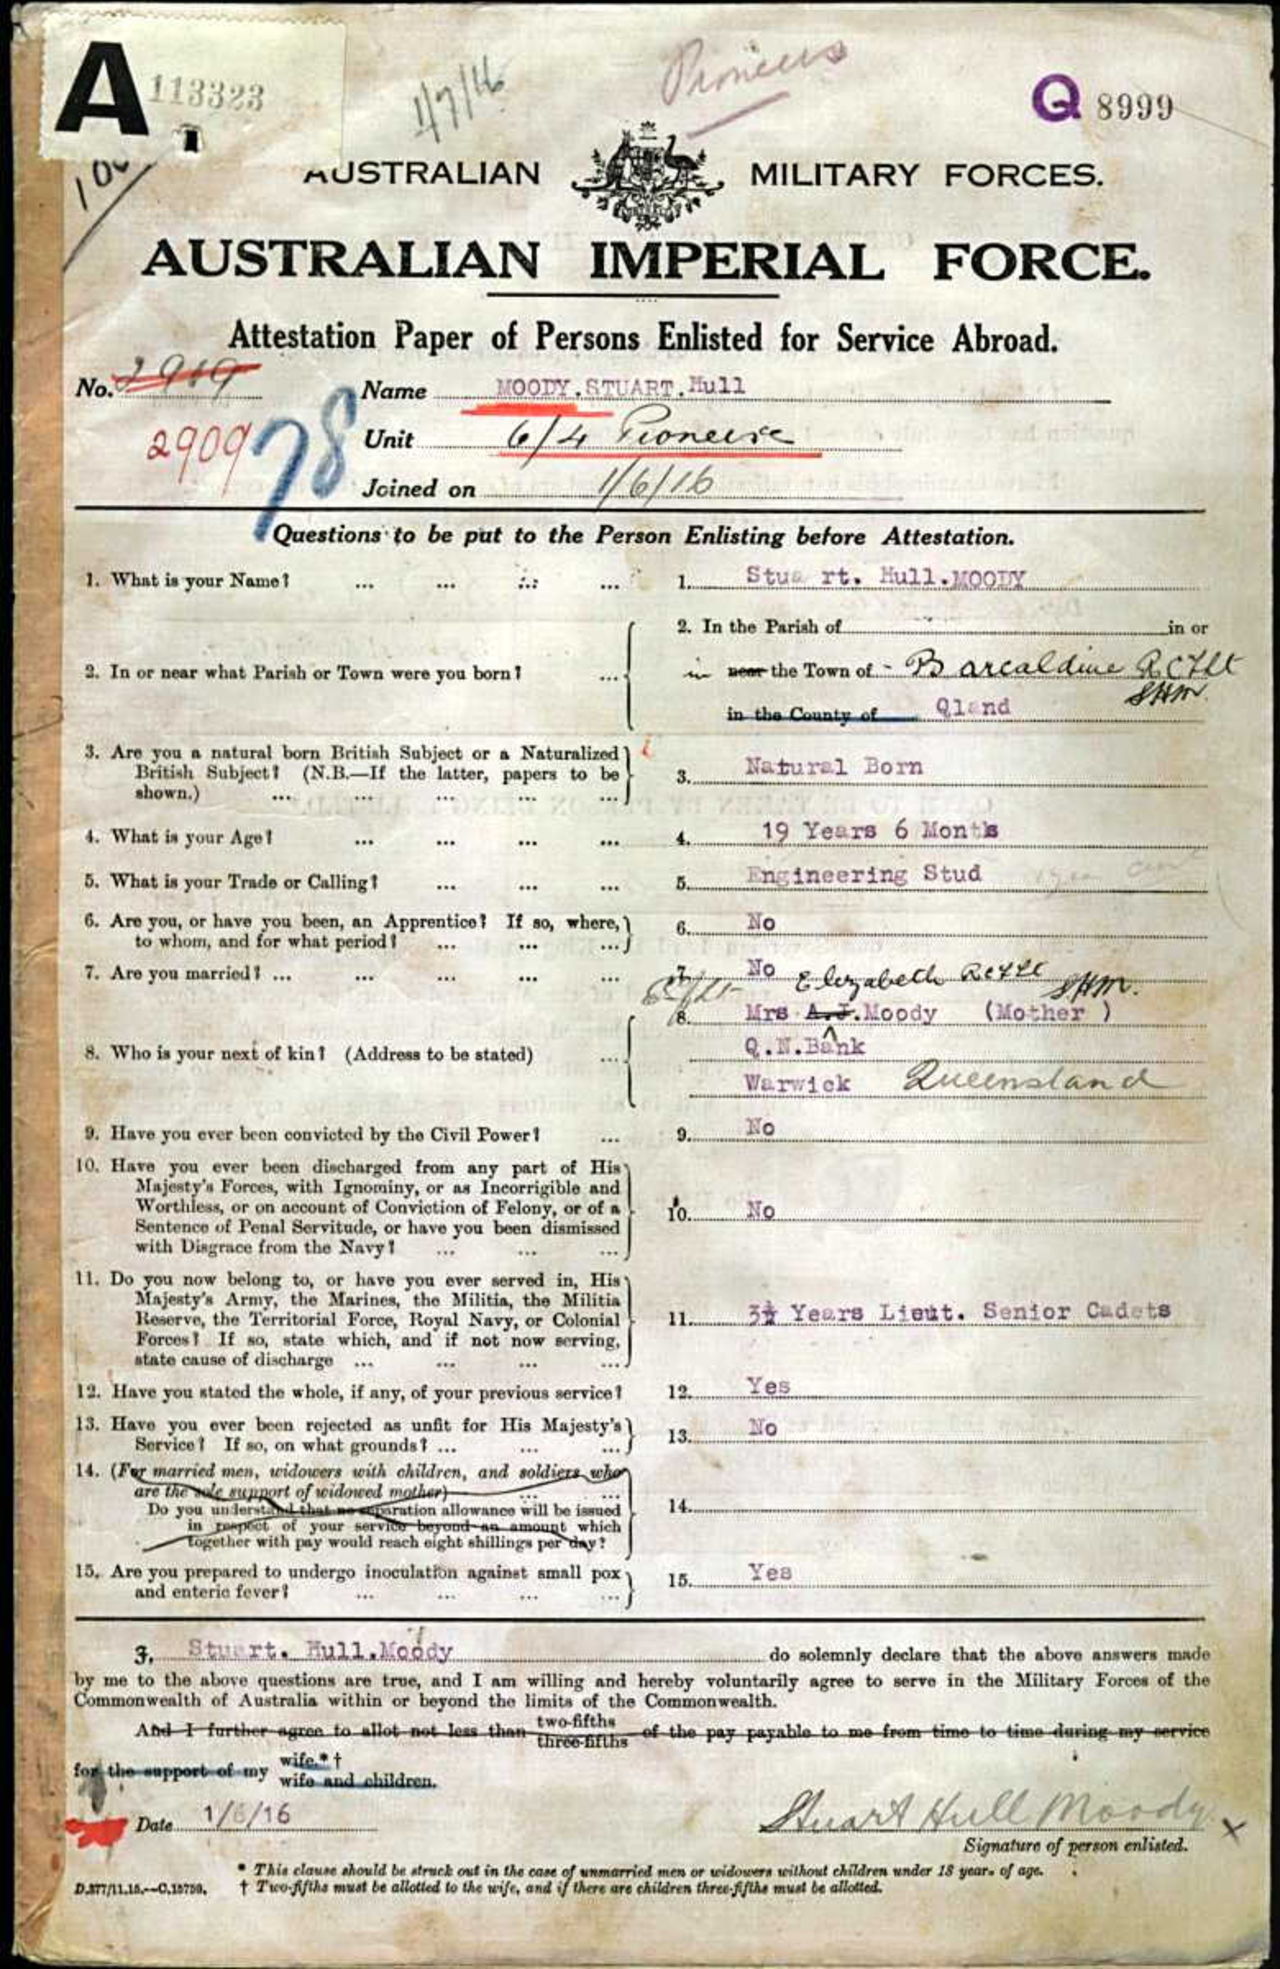 A 113323
1/7/16
Pioneers
Q 8999
AUSTRALIAN MILITARY FORCES.
AUSTRALIAN IMPERIAL FORCE.
Attestation Paper of Persons Enlisted for Service Abroad.
No. 2919 Name MOODY.STUART.Hull
2909 78 Unit 6/4 Pioneers
Joined on 1/6/16
Questions to be put to the Person Enlisting before Attestation.
1. What is your Name? ... ... ... ... 1. Stuart. Hull.MOODY
2. In the Parish of in or
2. In or near what Parish or Town were you born? ... in near the Town of - Barcaldine
SHM.
in the County of Qland
3. Are you a natural born British Subject or a Naturalized
British Subject? (N.B.—If the latter, papers to be
shown.) ... ... ... ... ... 3. Natural Born
4. What is your Age? ... ... ... ... 4. 19 Years 6 Months
5. What is your Trade or Calling? ... ... ... 5. Engineering Stud
6. Are you, or have you been, an Apprentice? If so, where,
to whom, and for what period? ... ... ... 6. No
7. Are you married? ... ... ... ... ... 7. No
Elizabeth SHM.
8. Mrs A.J.Moody (Mother )
8. Who is your next of kin? (Address to be stated) ... Q.N.Bank
Warwick Queensland
9. Have you ever been convicted by the Civil Power? ... 9. No
10. Have you ever been discharged from any part of His
Majesty's Forces, with Ignominy, or as Incorrigible and
Worthless, or on account of Conviction of Felony, or of a
Sentence of Penal Servitude, or have you been dismissed
with Disgrace from the Navy? ... ... ... 10. No
11. Do you now belong to, or have you ever served in, His
Majesty's Army, the Marines, the Militia, the Militia
Reserve, the Territorial Force, Royal Navy, or Colonial
Forces? If so, state which, and if not now serving,
state cause of discharge ... ... ... ... 11. 3½ Years Lieut. Senior Cadets
12. Have you stated the whole, if any, of your previous service? 12. Yes
13. Have you ever been rejected as unfit for His Majesty's
Service? If so, on what grounds? ... ... ... 13. No
14. (For married men, widowers with children, and soldiers who
are the sole support of widowed mother) ... ...
Do you understand that no separation allowance will be issued
in respect of your service beyond an amount which
together with pay would reach eight shillings per day? 14.
15. Are you prepared to undergo inoculation against small pox
and enteric fever? ... ... ... ... 15. Yes
I, Stuart. Hull.Moody do solemnly declare that the above answers made
by me to the above questions are true, and I am willing and hereby voluntarily agree to serve in the Military Forces of the
Commonwealth of Australia within or beyond the limits of the Commonwealth.
And I further agree to allot not less than two-fifths three-fifths of the pay payable to me from time to time during my service
for the support of my wife.*† wife and children.
Date 1/6/16 Stuart Hull Moody x
Signature of person enlisted.
* This clause should be struck out in the case of unmarried men or widowers without children under 18 years of age.
D.377/11.15.—C.15759. † Two-fifths must be allotted to the wife, and if there are children three-fifths must be allotted.